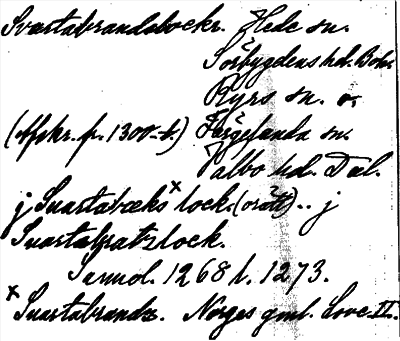 Svartabrandsbockr. Hede sn.
Sörbygdens hd. Boh.
Ryrs sn. o.
(Afskr. fr. 1300-t.) Färgelanda sn.
Valbo hd. Dal.
j Suartabæks x lock. (orätt) .. j
Suartabratzlock.
1268 l. 1273.
x Suartabrandz. Norges gml. Love II.